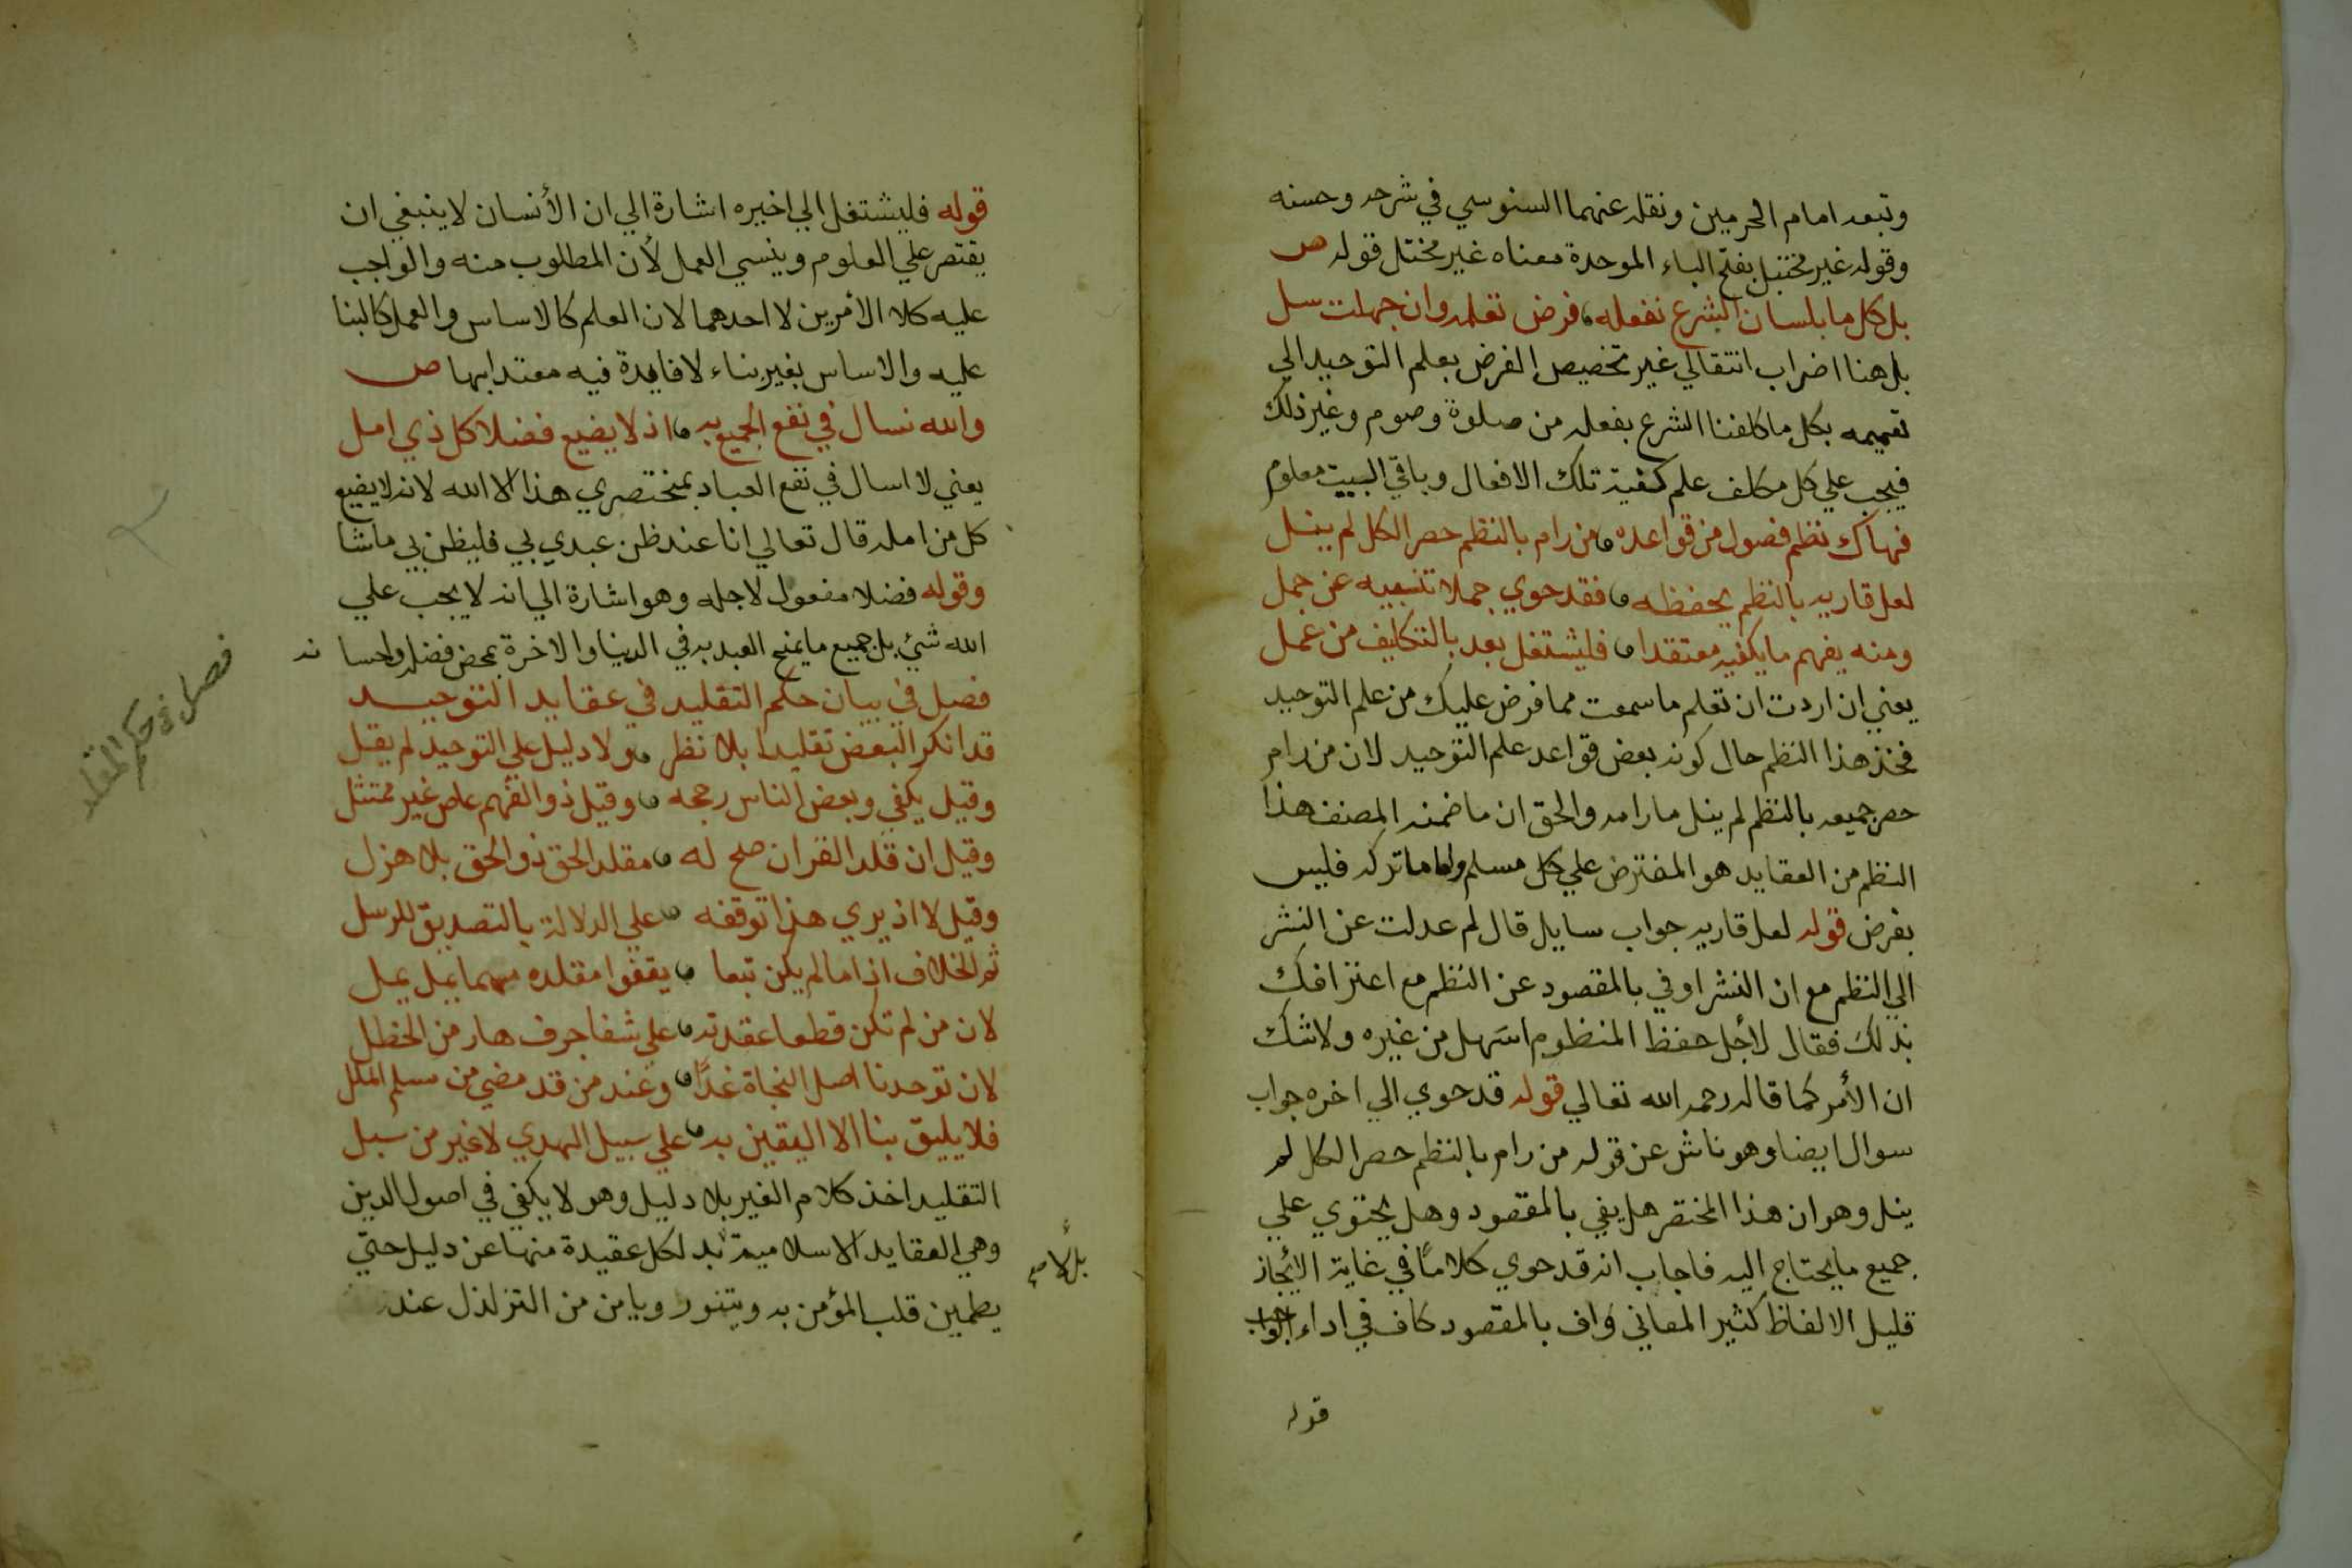 وتبعه امام الحرمين ونقله عنهما السنوسي في شرحه وحسنه
وقوله غير مختبل بفتح الباء الموحدة معناه غير مختل قوله ص
بل كل ما بلسان الشرع نفعله فرض تعلمه وان جهلت سل
بل هنا اضراب انتقالي غير تخصيص الفرض بعلم التوحيد الي
تعميمه بكل ما كلفنا الشرع بفعله من صلوة وصوم وغير ذلك
فيجب علي كل مكلف علم كيفية تلك الافعال وباقي البيت معلوم
فهاك نظم فصول من قواعده من رام بالنظم حصر الكل لم ينل
لعل قاريه بالنظم يحفظه فقد حوي جملا تنبيه عن جمل
ومنه يفهم ما يكفيه معتقدا فليشتغل بعد بالتكليف من عمل
يعني ان اردت ان تعلم ما سمعت مما فرض عليك من علم التوحيد
فخذ هذا النظم حال كونه بعض قواعد علم التوحيد لان من رام
حصر جميعه بالنظم لم ينل ما رامه والحق ان ما ضمنه المصنف هذا
النظم من العقايد هو المفترض علي كل مسلم واما ما تركه فليس
بفرض قوله لعل قاريه جواب سايل قال لم عدلت عن النثر
الي النظم مع ان النثر اوفي بالمقصود عن النظم مع اعترافك
بذلك فقال لأجل حفظ المنظوم اسهل من غيره ولا شك
ان الأمر كما قاله رحمه الله تعالي قوله قد حوي الي اخره جواب
سوال ايضا وهو ناش عن قوله من رام بالنظم حصر الكل لم
ينل وهو ان هذا المختصر هل يفي بالمقصود وهل يحتوي علي
جميع ما يحتاج اليه فاجاب انه قد حوي كلاما في غاية الايجاز
قليل الالفاظ كثير المعاني واف بالمقصود كاف في اداء الواجب
قوله
قوله فليشتغل الي اخيره اشارة الي ان الأنسان لا ينبغي ان
يقتصر علي العلوم وينسي العمل لأن المطلوب منه والواجب
عليه كلا الأمرين لا احدهما لان العلم كالاساس والعمل كالبنا
عليه والاساس بغير بناء لا فايدة فيه معتد ابها ص
والله نسال في نفع الجميع به اذ لا يضيع فضلا كل ذي امل
يعني لا اسال في نفع العباد بمختصري هذا الا الله لانه لا يضيع
كل من امله قال تعالي انا عند ظن عبدي بي فليظن بي ما شا
وقوله فضلا مفعول لاجله وهو اشارة الي انه لا يجب علي
الله شئ بل جميع ما يمنح العبد به في الدنيا والاخرة بمحض فضله واحسا نه
فصل في بيان حكم التقليد في عقايد التوحيد
فصل في حكم المقلد
قد انكر البعض تقليدا بلا نظر ولا دليل علي التوحيد لم يقل
وقيل يكفي وبعض الناس رجحه وقيل ذو الفهم عاص غير ممتثل
وقيل ان قلد القران صح له مقلد الحق ذو الحق بلا هزل
وقيل لا اذ يري هذا توقفه علي الدلالة بالتصديق للرسل
ثم الخلاف اذا ما لم يكن تبعا يقفوا مقلده مهما يمل يمل
لان من لم تكن قطعا عقدته علي شفا جرف هار من الخطل
لان توحدنا اصل النجاة غدًا وعند من قد مضي من سلم الملل
فلا يليق بنا الا اليقين به علي سبيل الهدي لا غير من سبل
التقليد اخذ كلام الغير بلا دليل وهو لا يكفي في اصول الدين
وهي العقايد الاسلامية بد لكل عقيدة منها عن دليل حتي
بل لا صح
يطمين قلب المؤمن به ويتنور ويامن من التزلزل عند